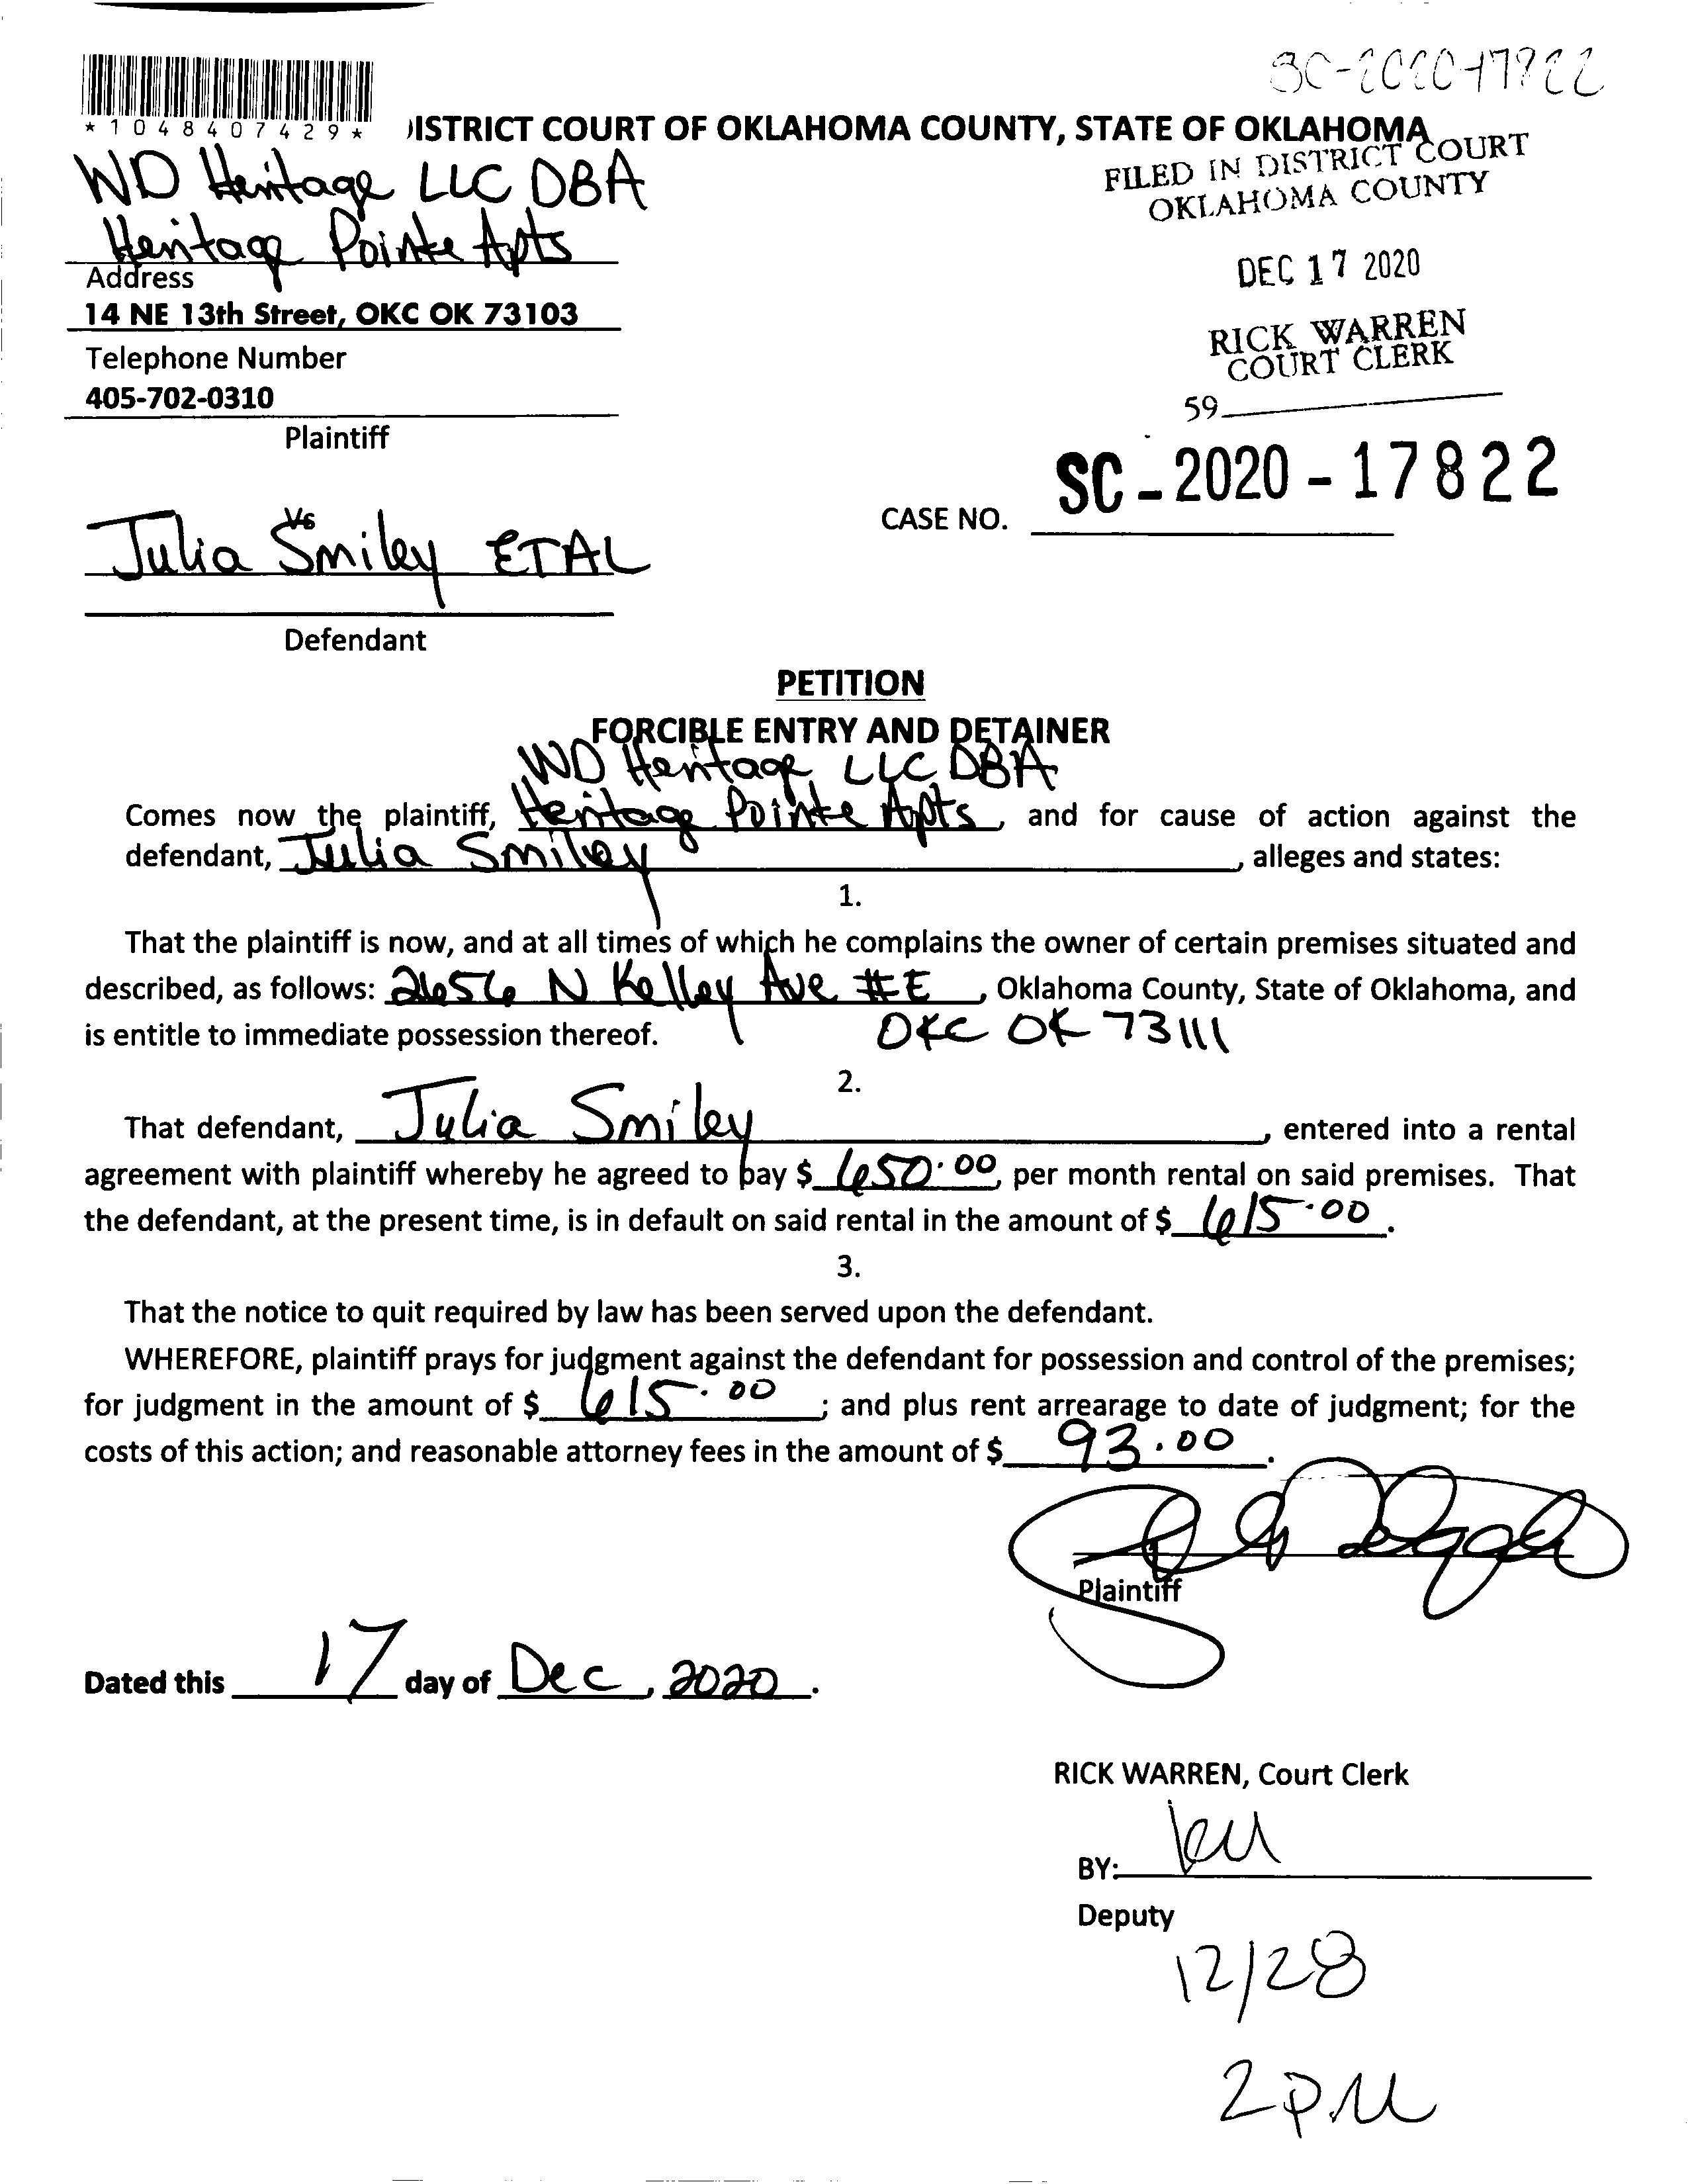 SC-2020-17822
*1048407429*
ISTRICT COURT OF OKLAHOMA COUNTY, STATE OF OKLAHOMA
FILED IN DISTRICT COURT
OKLAHOMA COUNTY
DEC 17 2020
RICK WARREN
COURT CLERK
59
WD Heritage LLC DBA
Heritage Pointe Apts
Address
14 NE 13th Street, OKC OK 73103
Telephone Number
405-702-0310
Plaintiff
Vs
CASE NO. SC-2020-17822
Julia Smiley ETAL
Defendant
PETITION
FORCIBLE ENTRY AND DETAINER
WD Heritage LLC DBA
Comes now the plaintiff, Heritage Pointe Apts, and for cause of action against the
defendant, Julia Smiley, alleges and states:
1.
That the plaintiff is now, and at all times of which he complains the owner of certain premises situated and
described, as follows: 2656 N Kelley Ave #E, Oklahoma County, State of Oklahoma, and
is entitle to immediate possession thereof. OKC OK 73111
2.
That defendant, Julia Smiley, entered into a rental
agreement with plaintiff whereby he agreed to pay $ 650.00, per month rental on said premises. That
the defendant, at the present time, is in default on said rental in the amount of $ 615.00.
3.
That the notice to quit required by law has been served upon the defendant.
WHEREFORE, plaintiff prays for judgment against the defendant for possession and control of the premises;
for judgment in the amount of $ 615.00; and plus rent arrearage to date of judgment; for the
costs of this action; and reasonable attorney fees in the amount of $ 93.00.
Plaintiff
Dated this 17 day of Dec, 2020.
RICK WARREN, Court Clerk
BY:
Deputy
12/28
2pm